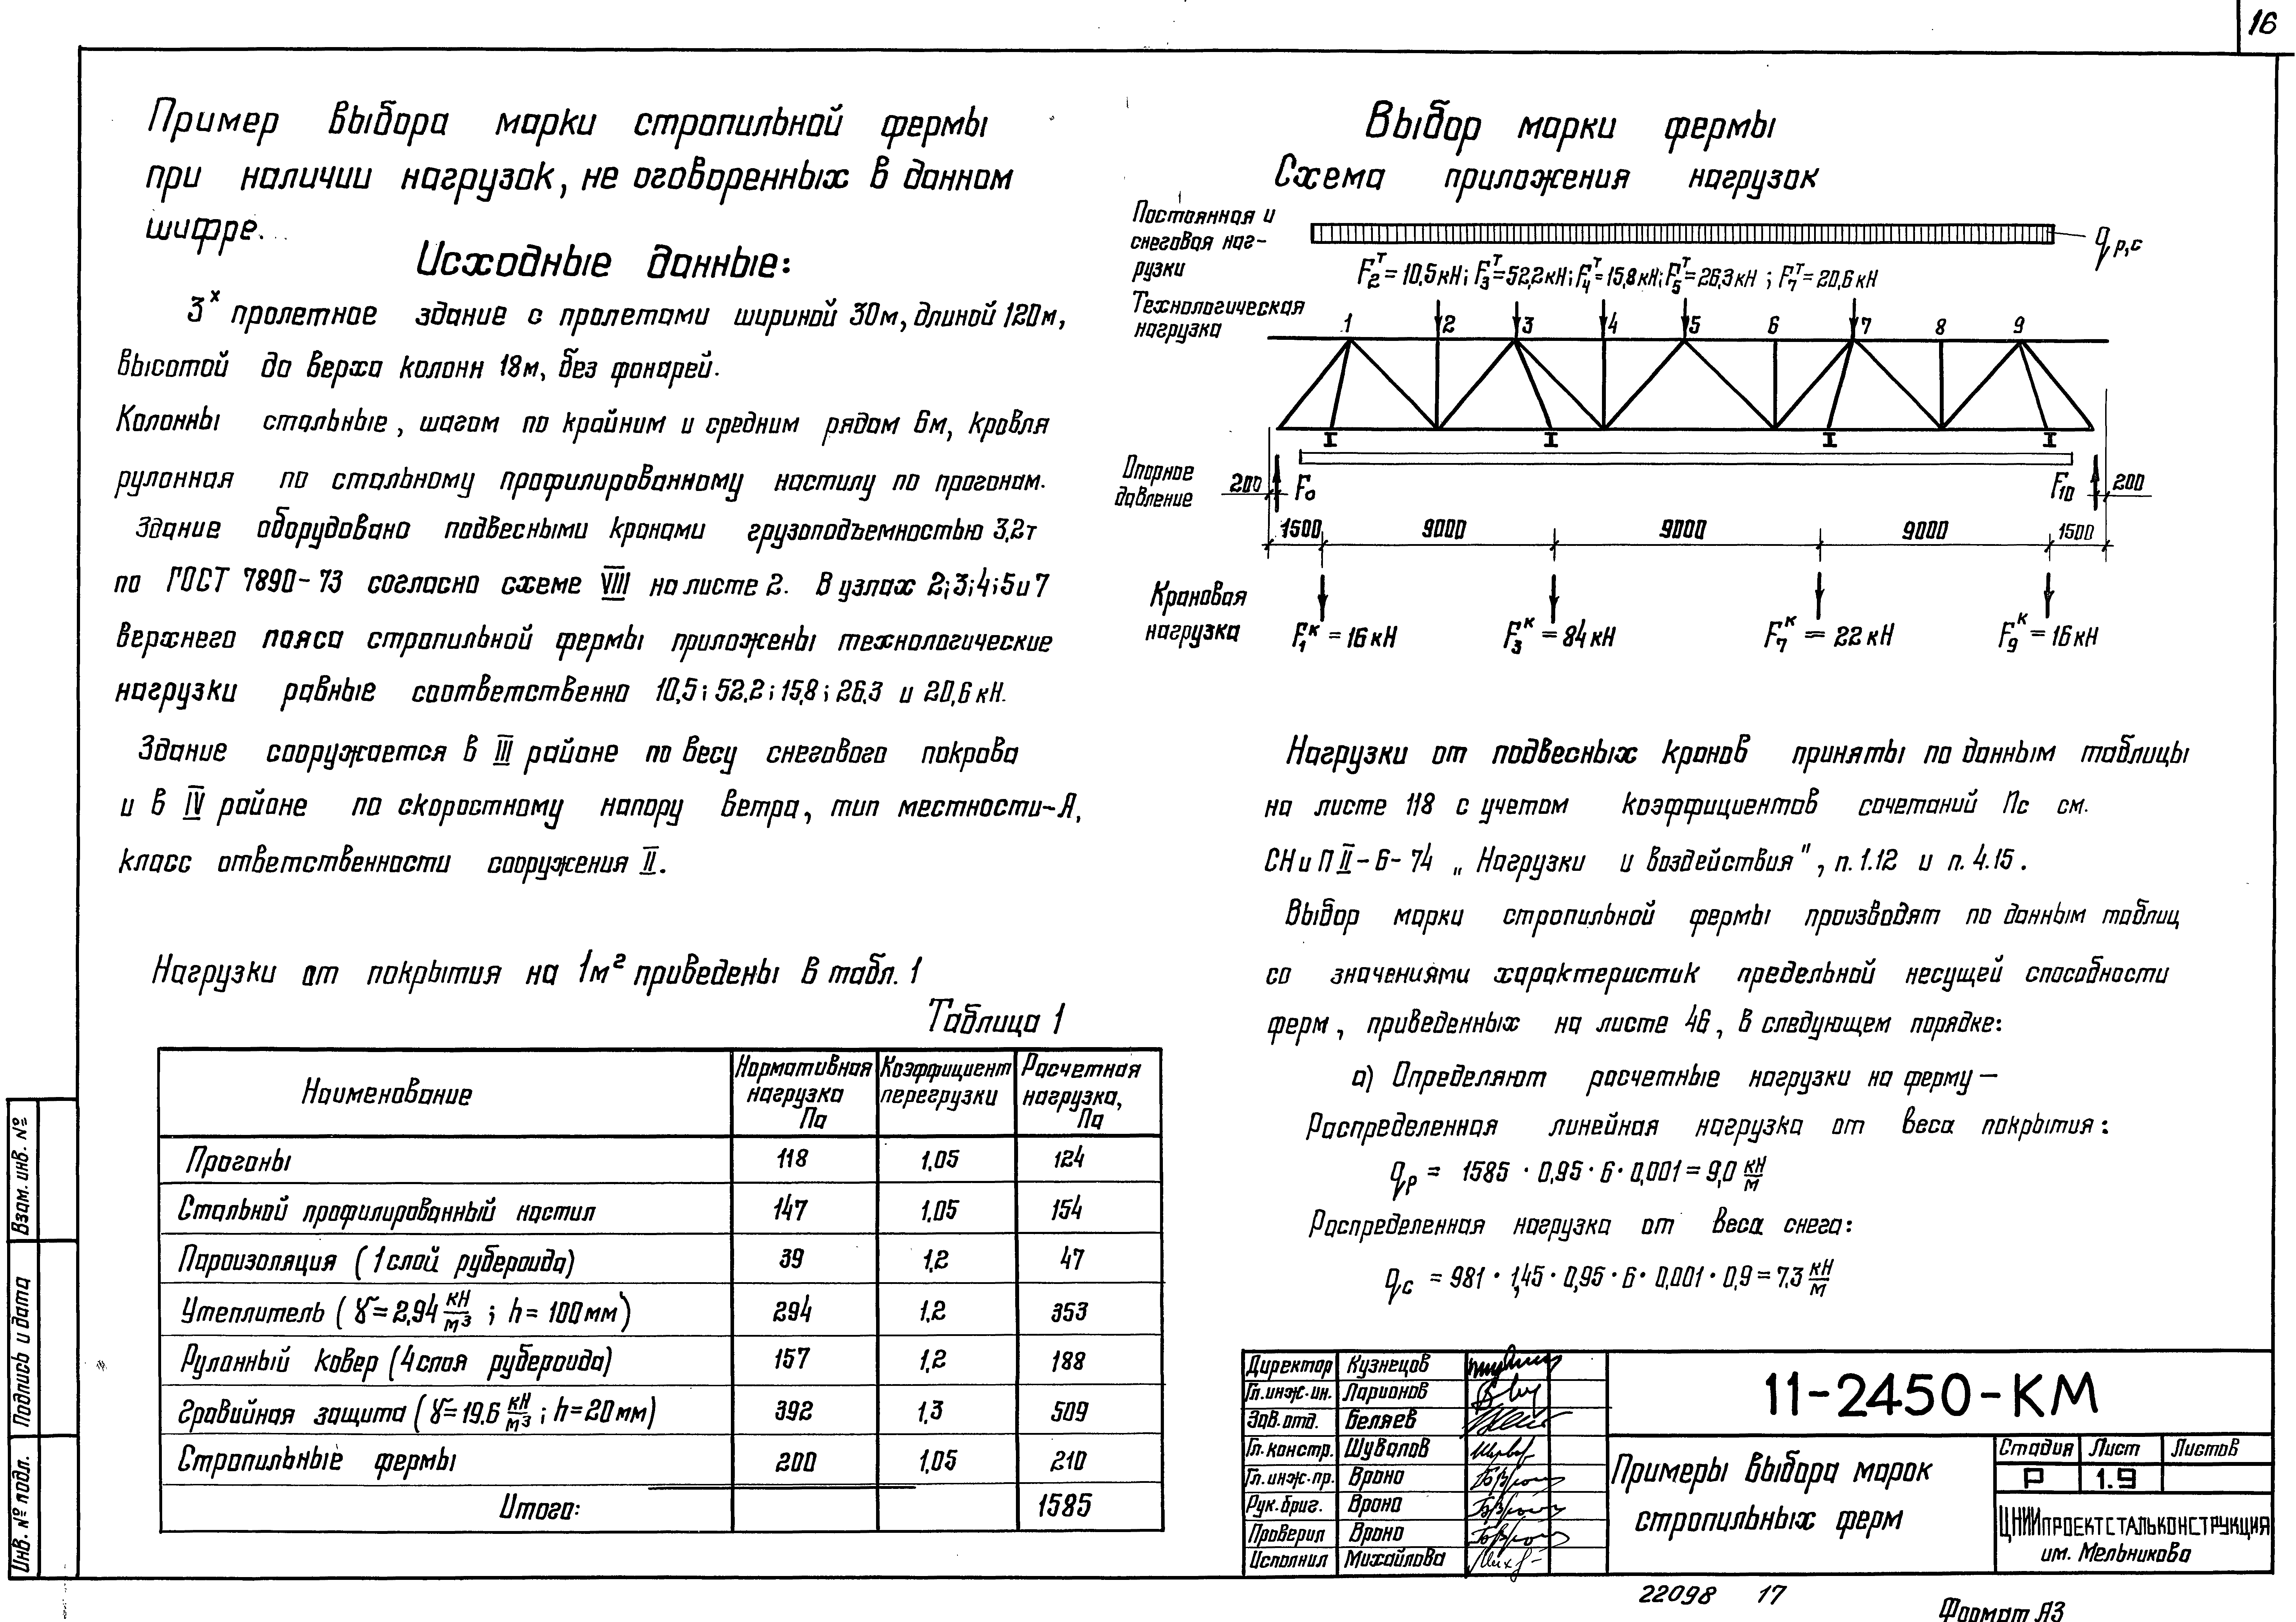 16
Пример выбора марки стропильной фермы
при наличии нагрузок, не оговоренных в данном
шифре.
Исходные данные:
3х пролетное здание с пролетами шириной 30м, длиной 120м,
высотой до верха колонн 18м, без фонарей.
Колонны стальные, шагом по крайним и средним рядам 6м, кровля
рулонная по стальному профилированному настилу по прогонам.
Здание оборудовано подвесными кранами грузоподъемностью 3,2т
по ГОСТ 7890-73 согласно схеме VIII на листе 2. В узлах 2;3;4;5и7
верхнего пояса стропильной фермы приложены технологические
нагрузки равные соответственно 10,5; 52,2; 15,8; 26,3 и 20,6 кН.
Здание сооружается в III районе по весу снегового покрова
и в IV районе по скоростному напору ветра, тип местности-А,
класс ответственности сооружения II.
Нагрузки от покрытия на 1м² приведены в табл. 1
Таблица 1
Наименование | Нормативная нагрузка Па | Коэффициент перегрузки | Расчетная нагрузка, Па
Прогоны 118 1,05 124
Стальной профилированный настил 147 1,05 154
Пароизоляция (1 слой рубероида) 39 1,2 47
Утеплитель (γ=2,94 кН/м³; h=100мм) 294 1,2 353
Рулонный ковер (4слоя рубероида) 157 1,2 188
Гравийная защита (γ=19,6 кН/м³; h=20мм) 392 1,3 509
Стропильные фермы 200 1,05 210
Итого: 1585
Выбор марки фермы
Схема приложения нагрузок
Постоянная и
снеговая наг-
рузки
qр,с
F₂ᵀ=10,5кН; F₃ᵀ=52,2кН; F₄ᵀ=15,8кН; F₅ᵀ=26,3кН; F₇ᵀ=20,6кН
Технологическая
нагрузка
1 2 3 4 5 6 7 8 9
Опорное
давление
200 F₀ F₁₀ 200
1500 9000 9000 9000 1500
Крановая
нагрузка
F₁ᴷ=16кН F₃ᴷ=84кН F₇ᴷ=22кН F₉ᴷ=16кН
Нагрузки от подвесных кранов приняты по данным таблицы
на листе 118 с учетом коэффициентов сочетаний Пс см.
СНиП II-6-74 „Нагрузки и воздействия", п.1.12 и п.4.15.
Выбор марки стропильной фермы производят по данным таблиц
со значениями характеристик предельной несущей способности
ферм, приведенных на листе 46, в следующем порядке:
а) Определяют расчетные нагрузки на ферму—
Распределенная линейная нагрузка от веса покрытия:
qр = 1585 · 0,95 · 6 · 0,001 = 9,0 кН/м
Распределенная нагрузка от веса снега:
qс = 981 · 1,45 · 0,95 · 6 · 0,001 · 0,9 = 7,3 кН/м
Директор Кузнецов
Гл.инж.ин. Ларионов
Зав.отд. Беляев
Гл.констр. Шувалов
Гл.инж.пр. Врона
Рук.бриг. Врона
Проверил Врона
Исполнил Михайлова
11-2450-КМ
Примеры выбора марок
стропильных ферм
Стадия Лист Листов
Р 1.9
ЦНИИПРОЕКТСТАЛЬКОНСТРУКЦИЯ
им. Мельникова
Взам. инв. №
Подпись и дата
Инв. № подл.
22098 17
Формат А3